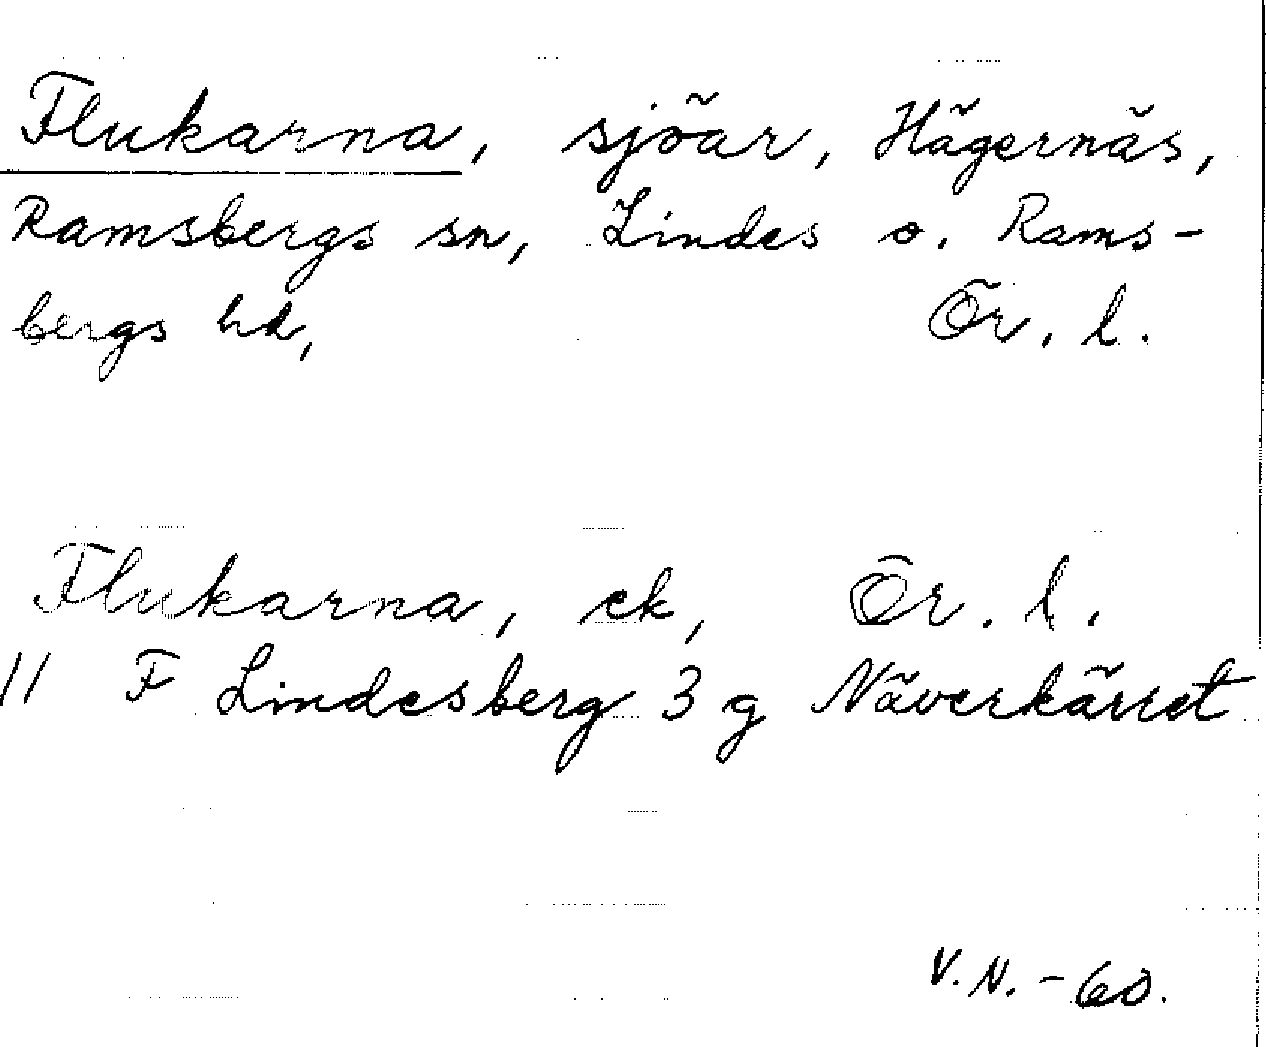 Flukarna, sjöar, Hägernäs,
Ramsbergs sn, Lindes o. Rams-
bergs hd, Ör. l.
Flukarna, ek, Ör. l.
11 F Lindesberg 3 g Näverkärret
V.N. - 60.